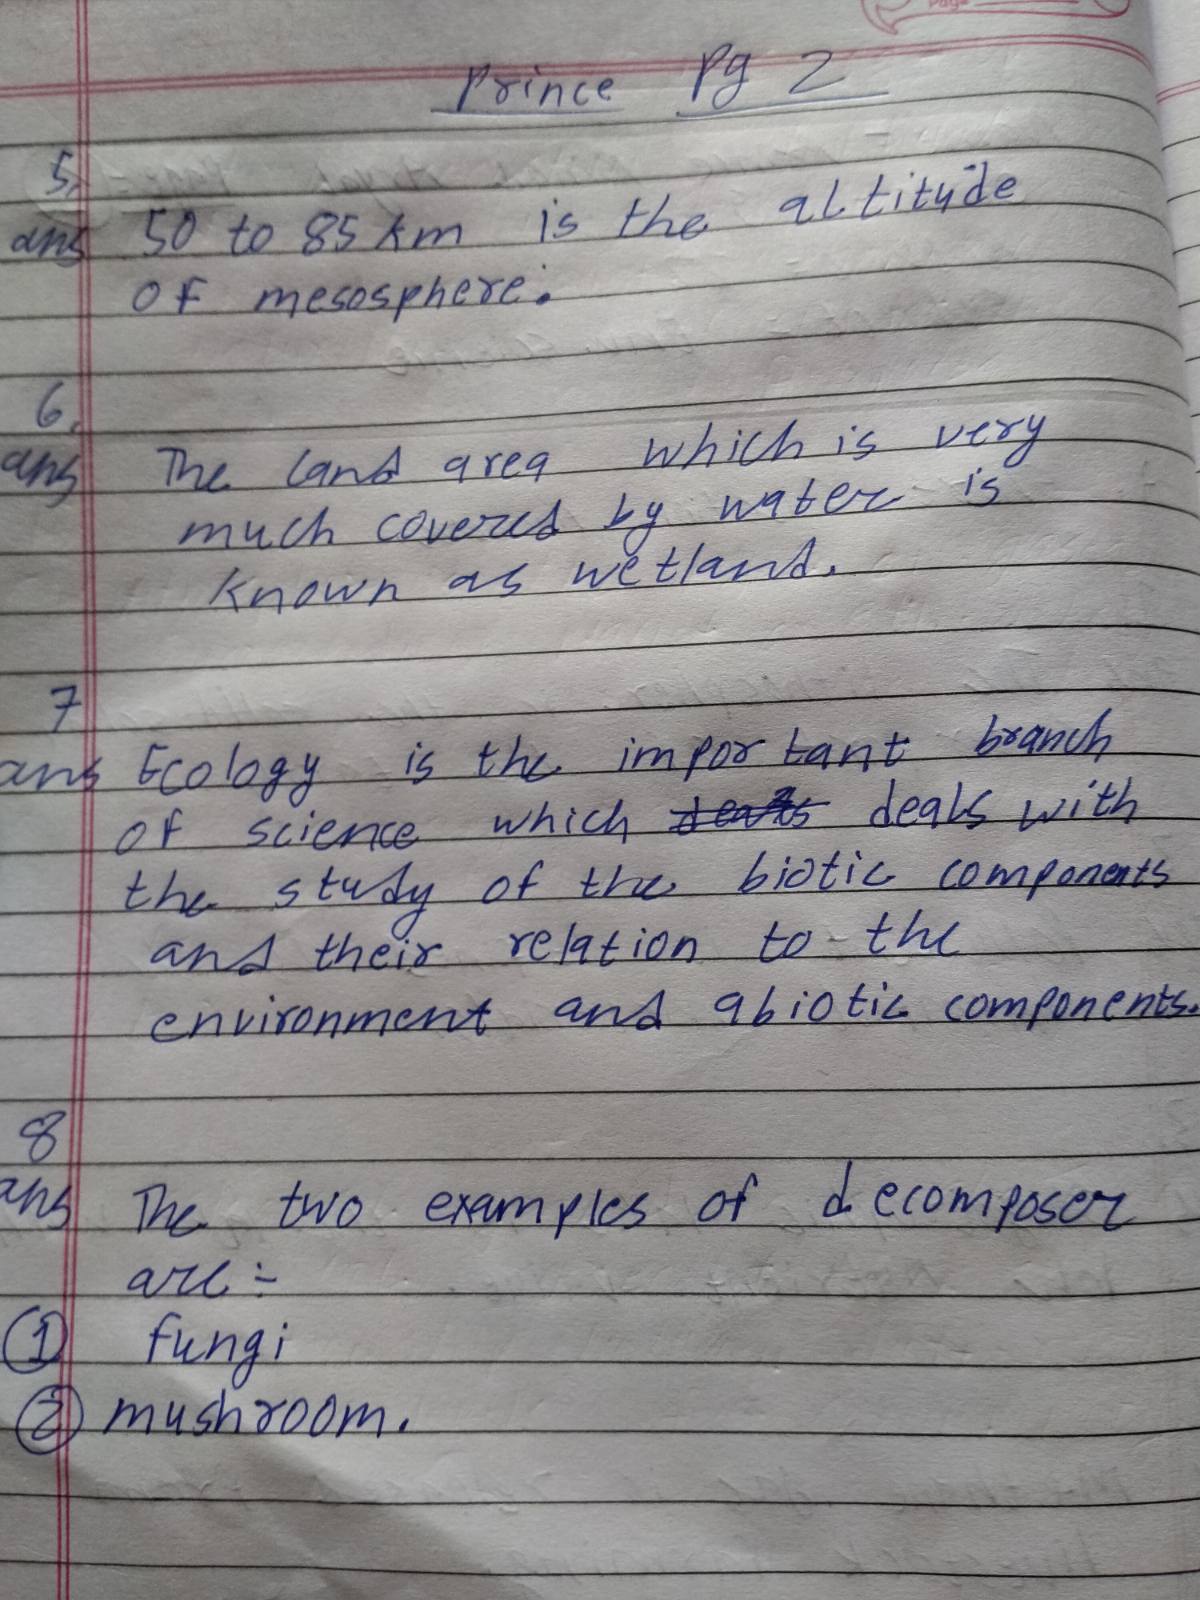 Page
Prince Pg 2
5.
ans 50 to 85 km is the altitude
of mesosphere.
6.
ans The land area which is very
much covered by water is
known as wetland.
7
ans Ecology is the important branch
of science which deals with
the study of the biotic components
and their relation to the
environment and abiotic components.
8
ans The two examples of decomposer
are :-
① fungi
② mushroom.